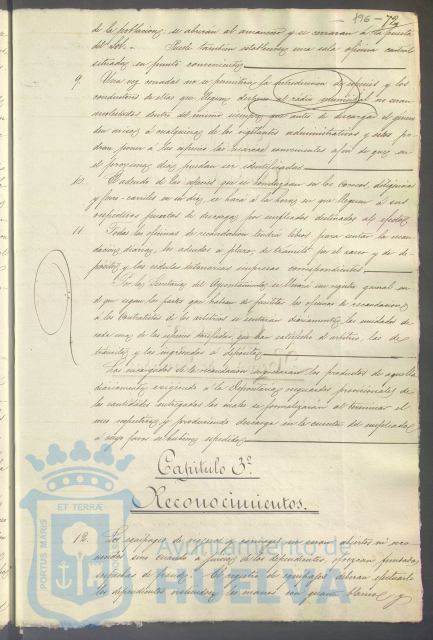 196 - 72
de la poblacion, se abrirán al amanecer y se cerrarán á la puesta
del Sol. - Puede tambien establecerse una sola oficina central
situada en punto conveniente
9. Una vez cerradas no se permitirá la introduccion de especies y los
conductores de ellas que lleguen al radio no serán
molestados dentro del mismo siempre que antes de descargar el género
den aviso á cualquiera de los vigilantes administrativos y estos po-
drán poner á las especies las marcas convenientes á fin de que en
el proximo dia puedan ser identificadas
10. El adeudo de las especies que se conduzcan en los correos, diligencias
y ferro-carriles en su dia, se hará á la hora en que lleguen á sus
respectivos puntos de descarga por empleados destinados al efecto.
11. Todas las oficinas de recaudacion tendrán libros para sentar la recau-
dacion diaria, los adeudos á plazo, de tránsito por el casco y de de-
pósito y las cédulas talonarias impresas correspondientes
Por la Secretaria del Ayuntamiento se llevará un registro general en
el que segun los partes que habrán de facilitar las oficinas de recaudacion
á los contratistas de los arbitrios se sentarán diariamente las unidades de
cada una de las especies tarifadas, que han satisfecho el arbitrio, las de
tránsito y las ingresadas á depósito
Los encargados de la recaudacion ingresarán los productos de aquella
diariamente exigiendo á la Depositaria resguardos provisionales de
las cantidades entregadas las cuales se formalizarán al terminar el
mes respectivo y produciendo descargo en la cuenta del empleado
á cuyo favor se hubiere expedido
Capitulo 3º
Reconocimientos.
12. Los equipages de viageros y carruages no serán abiertos ni reco-
nocidos sino cuando á juicio de los dependientes ofrezcan fundadas
sospechas de fraude. El registro de equipajes deberán efectuarlo
los dependientes las manos con guante blanco y
PORTUS MARIS ET TERRÆ
Ayuntamiento de
HUELVA